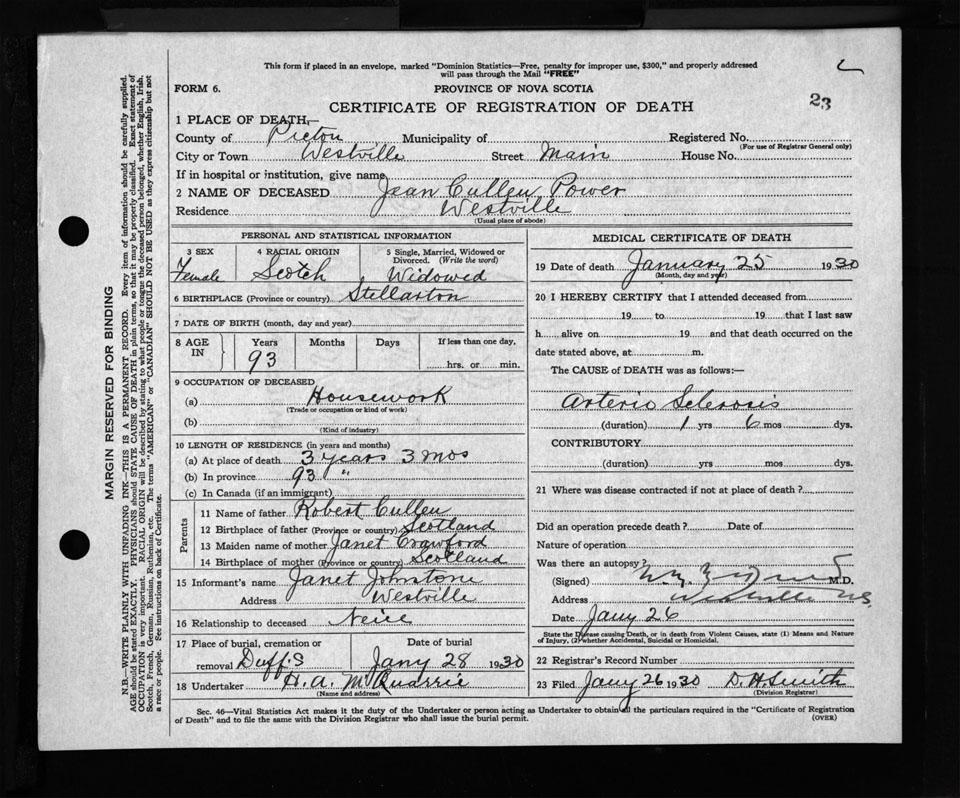 This form if placed in an envelope, marked "Dominion Statistics—Free, penalty for improper use, $300," and properly addressed
will pass through the Mail "FREE"
FORM 6.
PROVINCE OF NOVA SCOTIA
23
CERTIFICATE OF REGISTRATION OF DEATH
1 PLACE OF DEATH,—
County of Pictou Municipality of Registered No.
(For use of Registrar General only)
City or Town Westville Street Main House No.
If in hospital or institution, give name
2 NAME OF DECEASED Jean Cullen Power
Residence Westville
(Usual place of abode)
PERSONAL AND STATISTICAL INFORMATION
3 SEX 4 RACIAL ORIGIN 5 Single, Married, Widowed or
Divorced. (Write the word)
Female Scotch Widowed
6 BIRTHPLACE (Province or country) Stellarton
7 DATE OF BIRTH (month, day and year)
8 AGE IN Years Months Days If less than one day,
93 hrs. or min.
9 OCCUPATION OF DECEASED
(a) Housework
(Trade or occupation or kind of work)
(b)
(Kind of industry)
10 LENGTH OF RESIDENCE (in years and months)
(a) At place of death 3 years 3 mos
(b) In province 93 "
(c) In Canada (if an immigrant)
Parents
11 Name of father Robert Cullen
12 Birthplace of father (Province or country) Scotland
13 Maiden name of mother Janet Crawford
14 Birthplace of mother (Province or country) Scotland
15 Informant's name Janet Johnstone
Address Westville
16 Relationship to deceased Neice
17 Place of burial, cremation or Date of burial
removal Duff's Jany 28 1930
18 Undertaker H. A. McQuarrie
(Name and address)
MEDICAL CERTIFICATE OF DEATH
19 Date of death January 25 1930
(Month, day and year)
20 I HEREBY CERTIFY that I attended deceased from
19 to 19 that I last saw
h alive on 19 and that death occurred on the
date stated above, at m.
The CAUSE of DEATH was as follows:—
Arterio Sclerosis
(duration) 1 yrs 6 mos dys.
CONTRIBUTORY
(duration) yrs mos dys.
21 Where was disease contracted if not at place of death?
Did an operation precede death? Date of
Nature of operation
Was there an autopsy?
(Signed) M.D.
Address Westville N.S.
Date Jany 26
State the Disease causing Death, or in death from Violent Causes, state (1) Means and Nature
of Injury, (2) whether Accidental, Suicidal or Homicidal.
22 Registrar's Record Number
23 Filed Jany 26 1930 D. H. Smith
(Division Registrar)
Sec. 46—Vital Statistics Act makes it the duty of the Undertaker or person acting as Undertaker to obtain all the particulars required in the "Certificate of Registration
of Death" and to file the same with the Division Registrar who shall issue the burial permit.
(OVER)
MARGIN RESERVED FOR BINDING
N.B.—WRITE PLAINLY WITH UNFADING INK—THIS IS A PERMANENT RECORD. Every item of information should be carefully supplied.
AGE should be stated EXACTLY. PHYSICIANS should STATE CAUSE OF DEATH in plain terms, so that it may be properly classified. Exact statement of
OCCUPATION is very important. RACIAL ORIGIN will be described by stating to what people or tongue the deceased person belonged, whether English, Irish,
Scotch, French, German, Russian, Ruthenian, etc. The terms "AMERICAN" or "CANADIAN" SHOULD NOT BE USED as they express citizenship but not
a race or people. See instructions on back of Certificate.